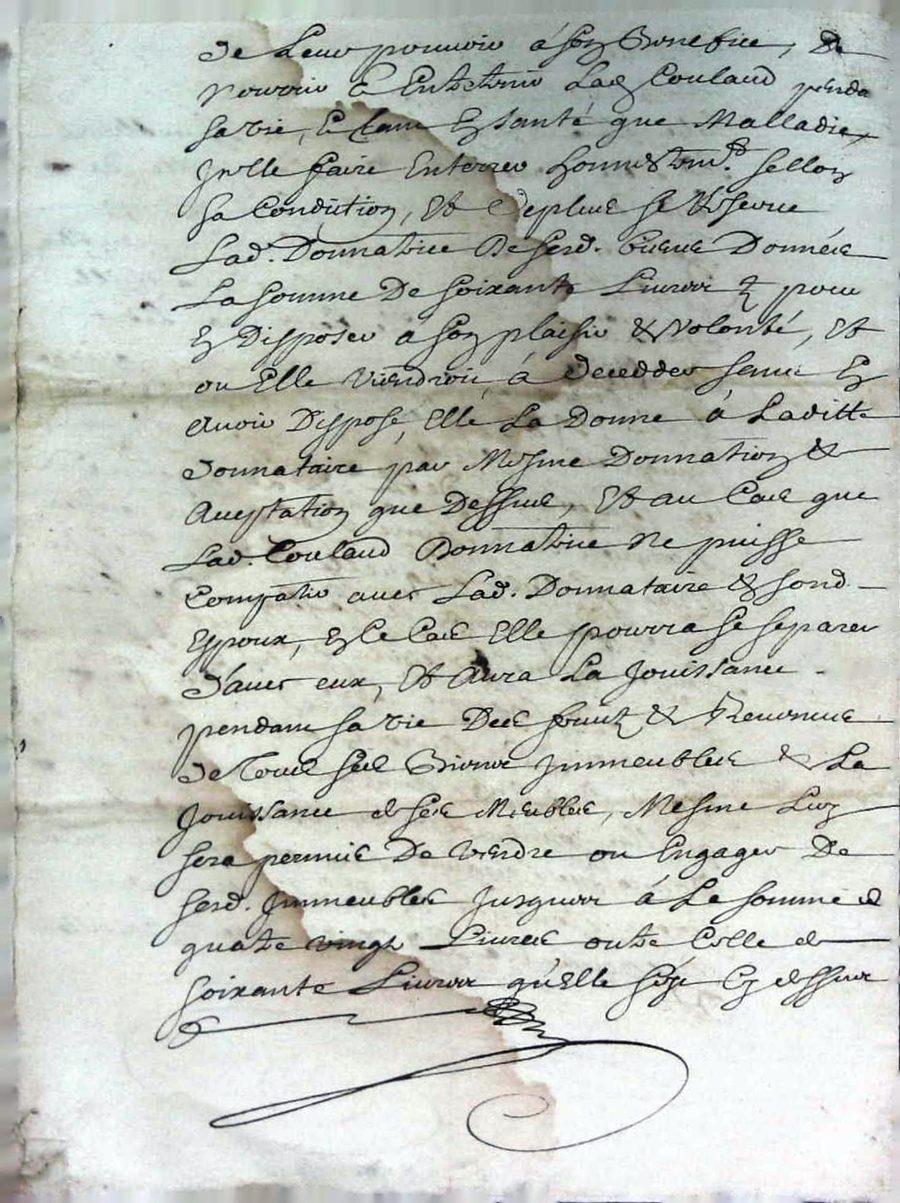 de Leur pouvoir à son Benefice, de
Nourrir & Entretenir Lad. Coulaud penda
sa vie, & tant En santé que Malladie,
Jcelle faire Enterrer honnestemt. sellon
sa Condition, Et deplus se Reserve
Lad. Donnatrice De sesd. biens Données
La somme De soixante Livres pour
En Disposer à son plaisir & volonté, Et
ou Elle Viendroit à decedder sans En
avoir Disposé, Elle La Donne à Laditte
donnataire par Mesme Donnation &
Aceptation que Dessus, Et au Cas que
Lad. Coulaud Donnatrice Ne puisse
Compatir avec Lad. Donnataire & sond
Espoux, En Ce Cas Elle pourra se separer
d'avec eux, Et Aura La Jouissance
pendant sa vie Des fruits & Revenus
de Tous ses Biens Jmmeubles & La
Jouissance de ses Meubles, Mesme Luy
sera permis De Vendre ou Engager De
sesd. Jmmeubles Jusques à La somme de
quatre vingt Livres outre Celle de
soixante Livres qu'Elle Cy dessus